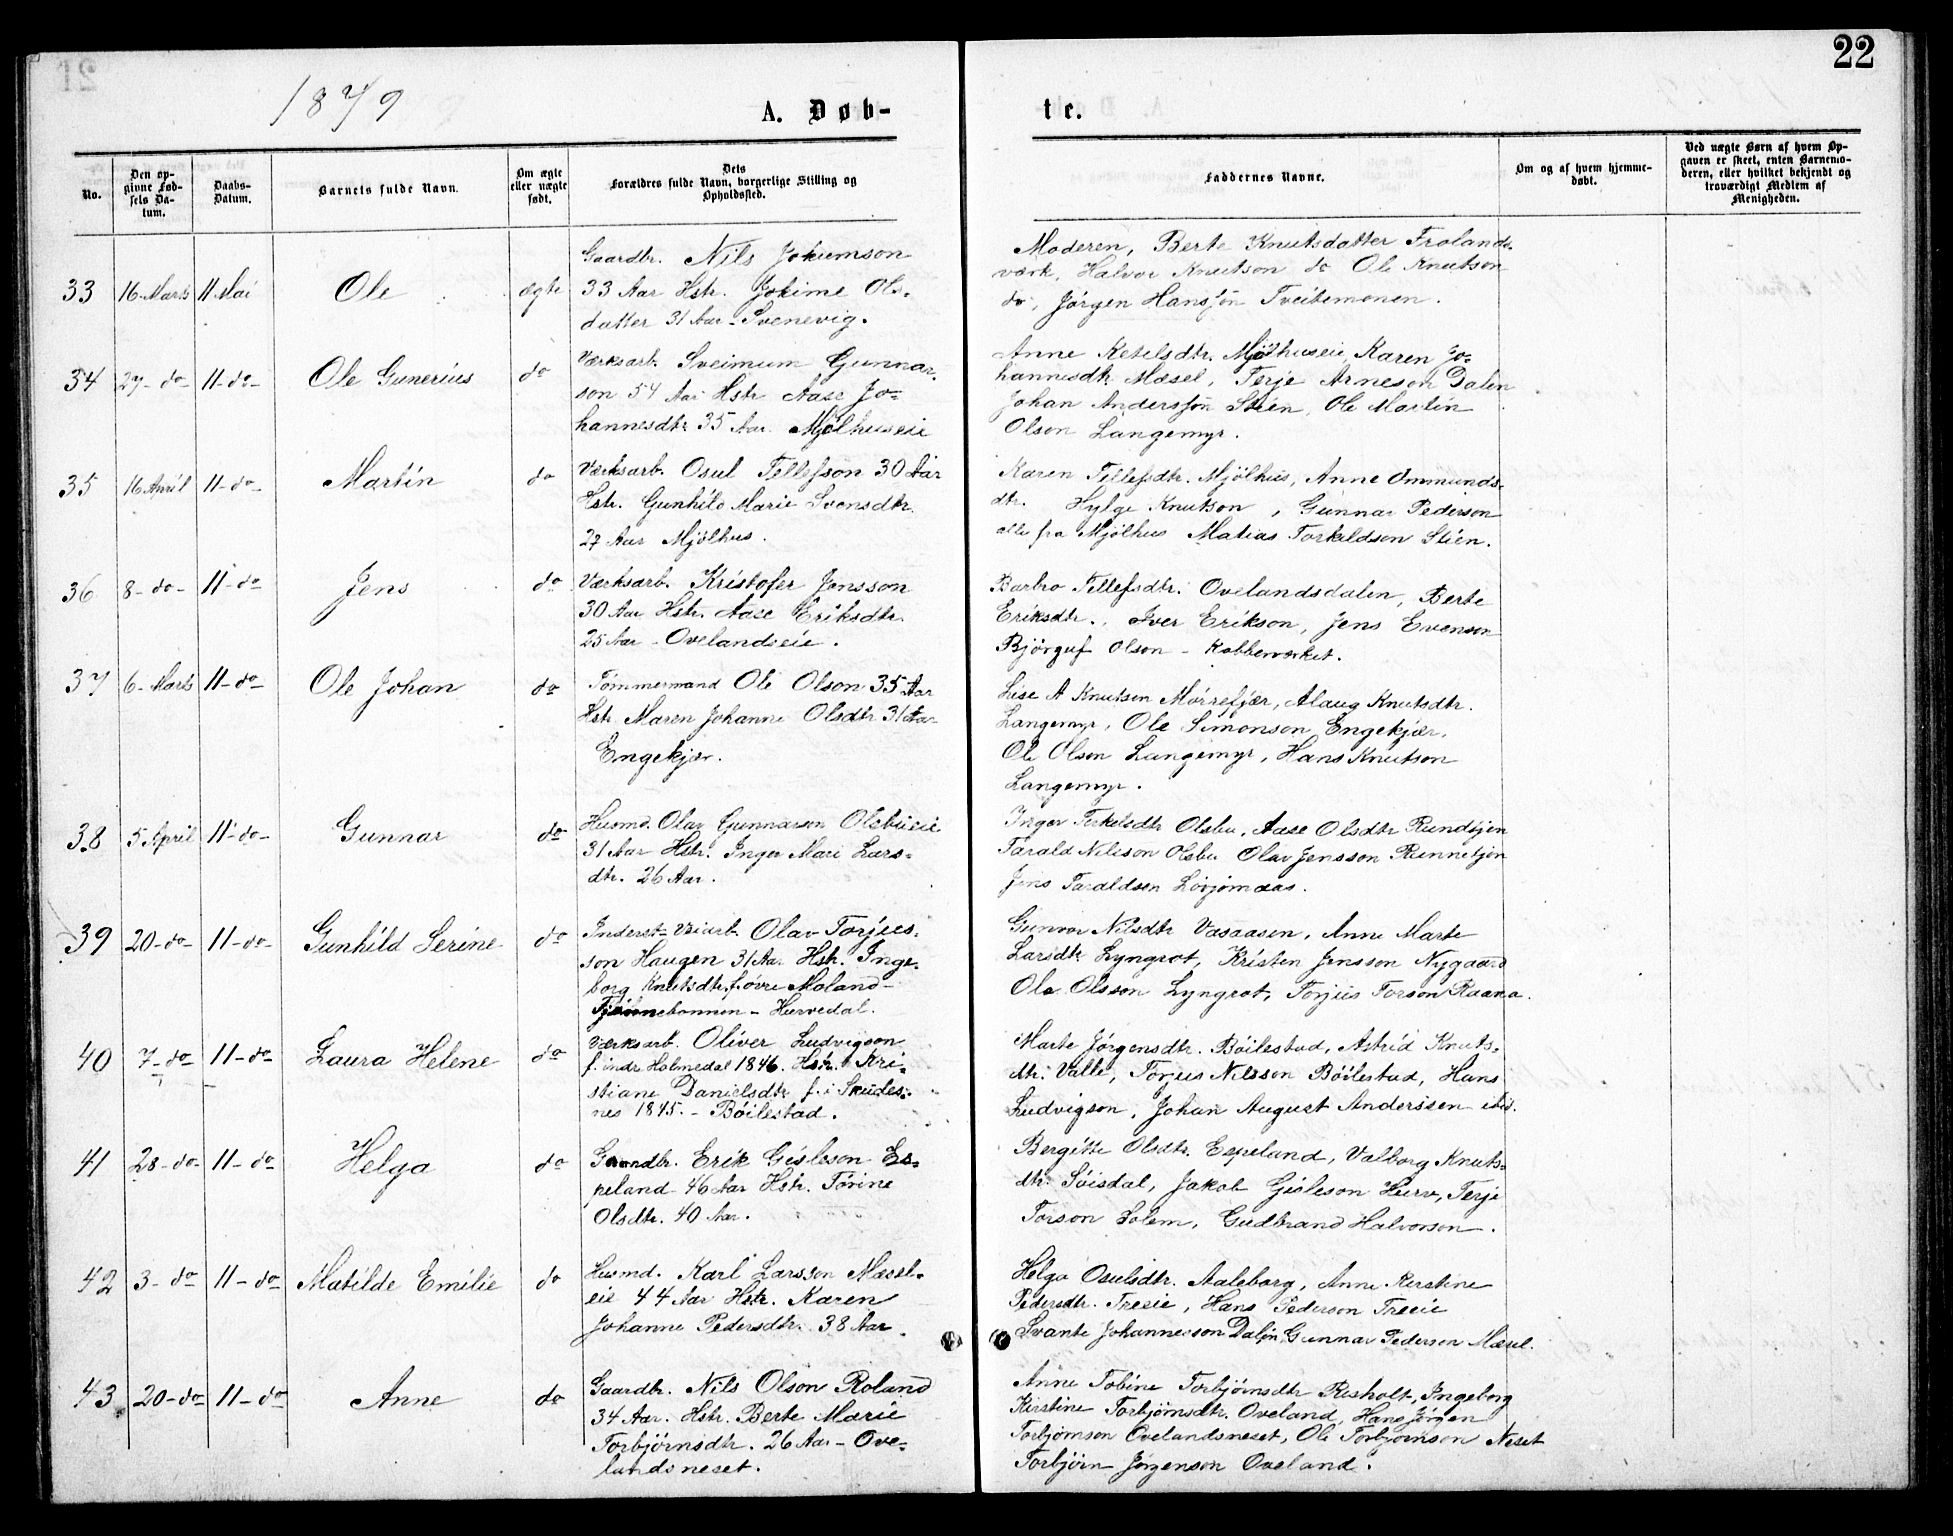 22
1879
A. Døb-
te.
No.
Den op-
givne Fød-
sels Da-
tum.
Daabs-
Datum.
Barnets fulde Navn.
Om ægte
eller uægte
født.
Dets
Forældres fulde Navn, borgerlige Stilling og
Opholdssted.
Faddernes Navne.
Om og af hvem hjemme-
døbt.
Ved uægte Børn af hvem Op-
gaven er skeet, enten Barnemo-
deren, eller hvilket bekjendt og
troværdigt Medlem af
Menigheden.
33 16 Marts 11 Mai Ole ægte
Gaardbr. Nils Jokumson
33 Aar Hstr. Jokime Ols-
datter 31 Aar - Svenevig.
Moderen, Berte Knutsdatter Frolands-
værk, Halvor Knutson do Ole Knutson
do, Jörgen Hansson Tveitemonen.
34 27-do- 11-do- Ole Gunerius do
Værksarb. Sveinum Gunnar-
son 54 Aar Hstr Aase Jo-
hannesdtr 35 Aar. Mjölhuseie
Anne Ketelsdtr. Mjölhuseie, Karen Jo-
hannesdtr Mæsel, Terje Arneson Dalen
Johan Andersson Stien, Ole Martin
Olson Langemyr.
35 16 April 11-do- Martin do
Værksarb. Osul Tellefson 30 Aar
Hstr. Gunhild Marie Svensdtr.
27 Aar Mjölhus.
Karen Tellefsdtr. Mjölhus, Anne Ommunds-
dtr. Hylge Knutson, Gunnar Pederson
alle fra Mjölhus Matias Torkildson Stien.
36 8-do- 11-do Jens do
Værksarb. Kristofer Jensson
30 Aar Hstr. Aase Eriksdtr.
25 Aar - Ovelandseie.
Barbro Tellefsdtr. Ovelandsdalen, Berte
Eriksdtr., Iver Erikson, Jens Evenson
Björguf Olson - Kobberværket.
37 6-Marts 11-do- Ole Johan do
Tømmermand Ole Olson 35 Aar
Hstr Maren Johanne Olsdtr 31 Aar
Engekjær.
Lise A Knutsen Mörrefjær, Alaug Knutsdtr.
Langemyr, Ole Simonson Engekjær,
Ole Olson Langemyr, Hans Knutson
Langemyr.
38 5 April 11-do- Gunnar do
Husmd. Olav Gunnarson Olsbueie
31 Aar Hstr. Inger Mari Lars-
dtr. 26 Aar.
Inger Terkelsdtr Olsbu, Aase Olsdtr
Tarald Nilsson Olsbu Olav Jensson
Jens Taraldsen
39 20-do- 11-do- Gunhild Serine do
Inderst-Veiarb. Olav Torjus-
son Haugen 31 Aar Hstr. Inge-
borg Knutsdtr. f. øvre Moland-
Tjönnebonnen - Hurvedal.
Gunvor Nilsdtr Vasaasen, Anne Marte
Larsdtr Lyngrot, Kristen Jensson Nygaard
Ole Olsson Lyngrot, Torjus Torson Raana.
40 7-do 11-do Laura Helene do
Værksarb. Oliver Ludvigson
f. indr Holmedal 1846. Hstr. Kri-
stiane Danielsdtr f. i Skudes-
nes 1845. - Böilestad.
Marte Jørgensdtr. Böilestad, Astrid Knuts-
dtr. Valle, Torjus Nilsson Böilestad, Hans
Ludvigson, Johan August Anderssen ibid.
41 28-do- 11-do Helga do
Gaardbr. Erik Gisleson Es-
peland 46 Aar Hstr. Torine
Olsdtr. 40 Aar.
Bergitte Olsdtr. Espeland, Valborg Knuts-
dtr. Söisdal, Jakob Gisleson Hurv, Terje
Torson Solem, Gudbrand Halvorson.
42 3-do 11-do Matilde Emilie do
Husmd. Karl Larsson Mæsel-
eie 44 Aar Hstr. Karen
Johanne Pedersdtr. 38 Aar.
Helga Osulsdtr. Aaleborg, Anne Kerstine
Pedersdtr. Treeie, Hans Pederson Treeie
Svante Johannesson Dalen, Gunnar Pederson Mæsel.
43 20-do 11-do Anne do
Gaardbr. Nils Olson Roland
34 Aar. Hstr. Berte Marie
Torbjörnsdtr. 26 Aar - Ove-
landsneset.
Anne Tobine Torbjörnsdtr Risholt, Ingeborg
Kirstine Torbjörnsdtr. Oveland, Hans Jörgen
Torbjörnson Ovelandsneset, Ole Torbjornson Neset
Torbjörn Jørgenson Oveland.